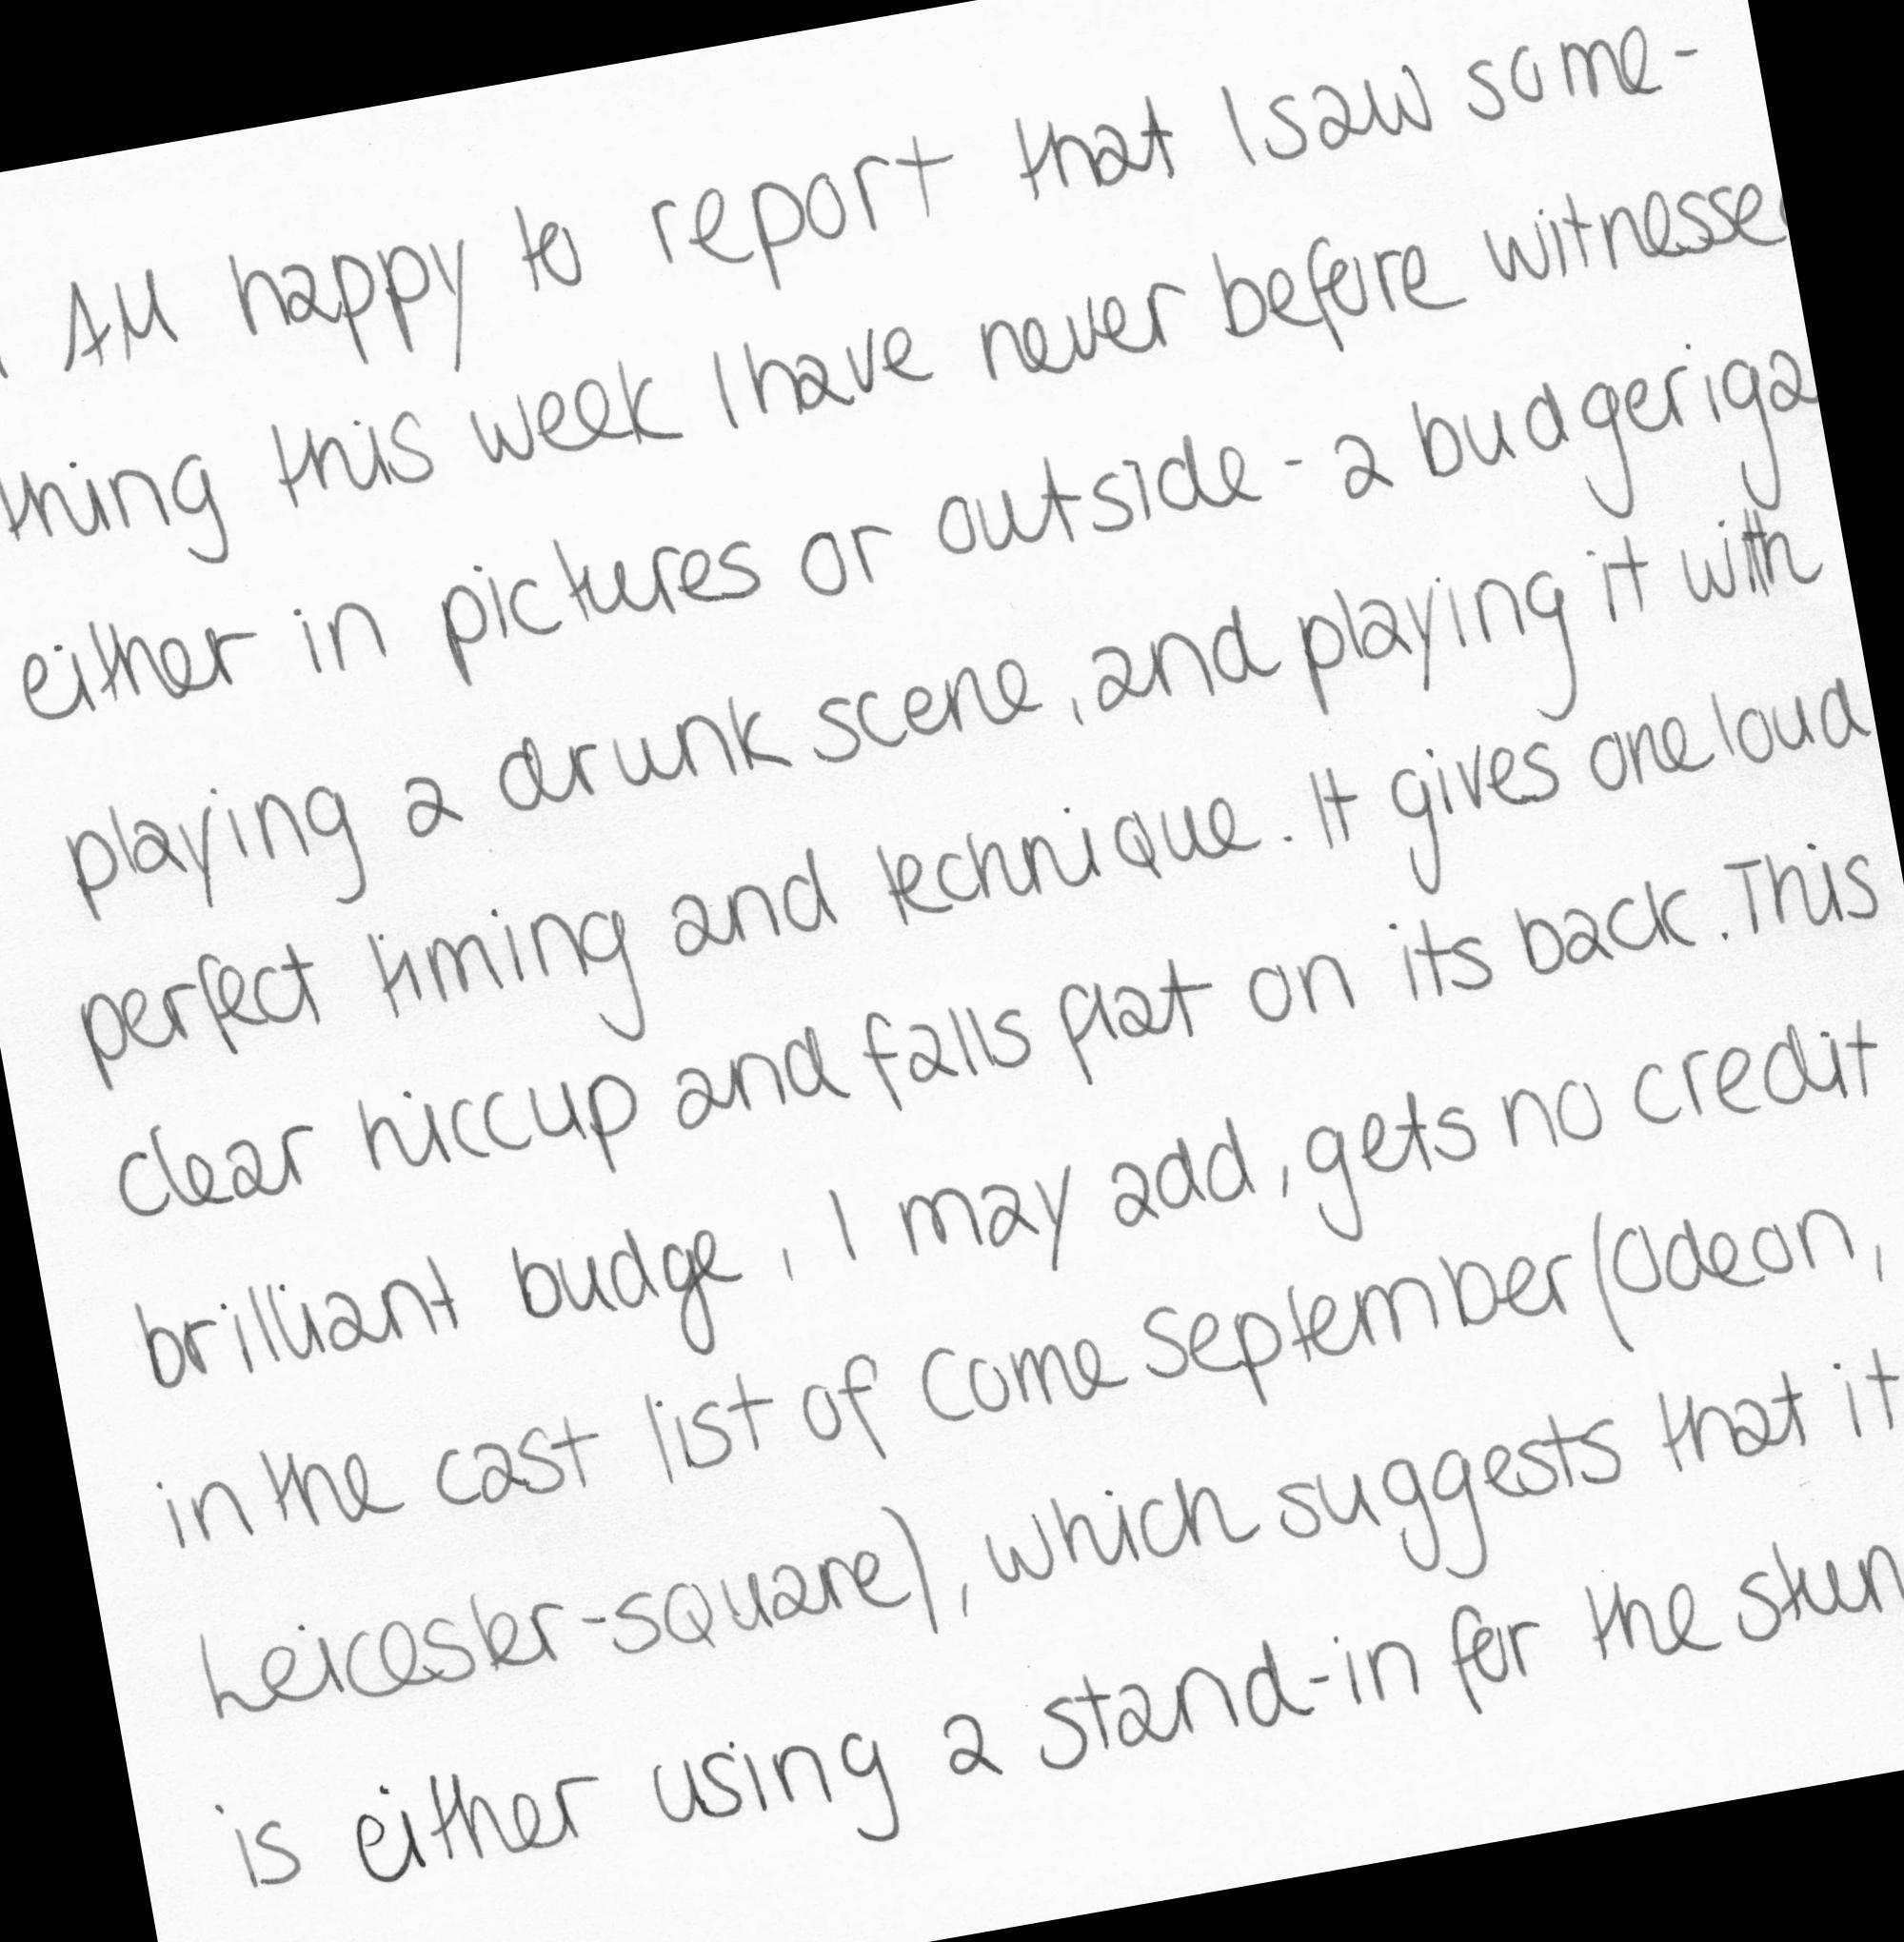 I AM happy to report that I saw some-
thing this week I have never before witnessed
either in pictures or outside - a budgeriga
playing a drunk scene, and playing it with
perfect timing and technique. It gives one loud
clear hiccup and falls flat on its back. This
brilliant budge, I may add, gets no credit
in the cast list of Come September (Odeon,
Leicester-square), which suggests that it
is either using a stand-in for the stun